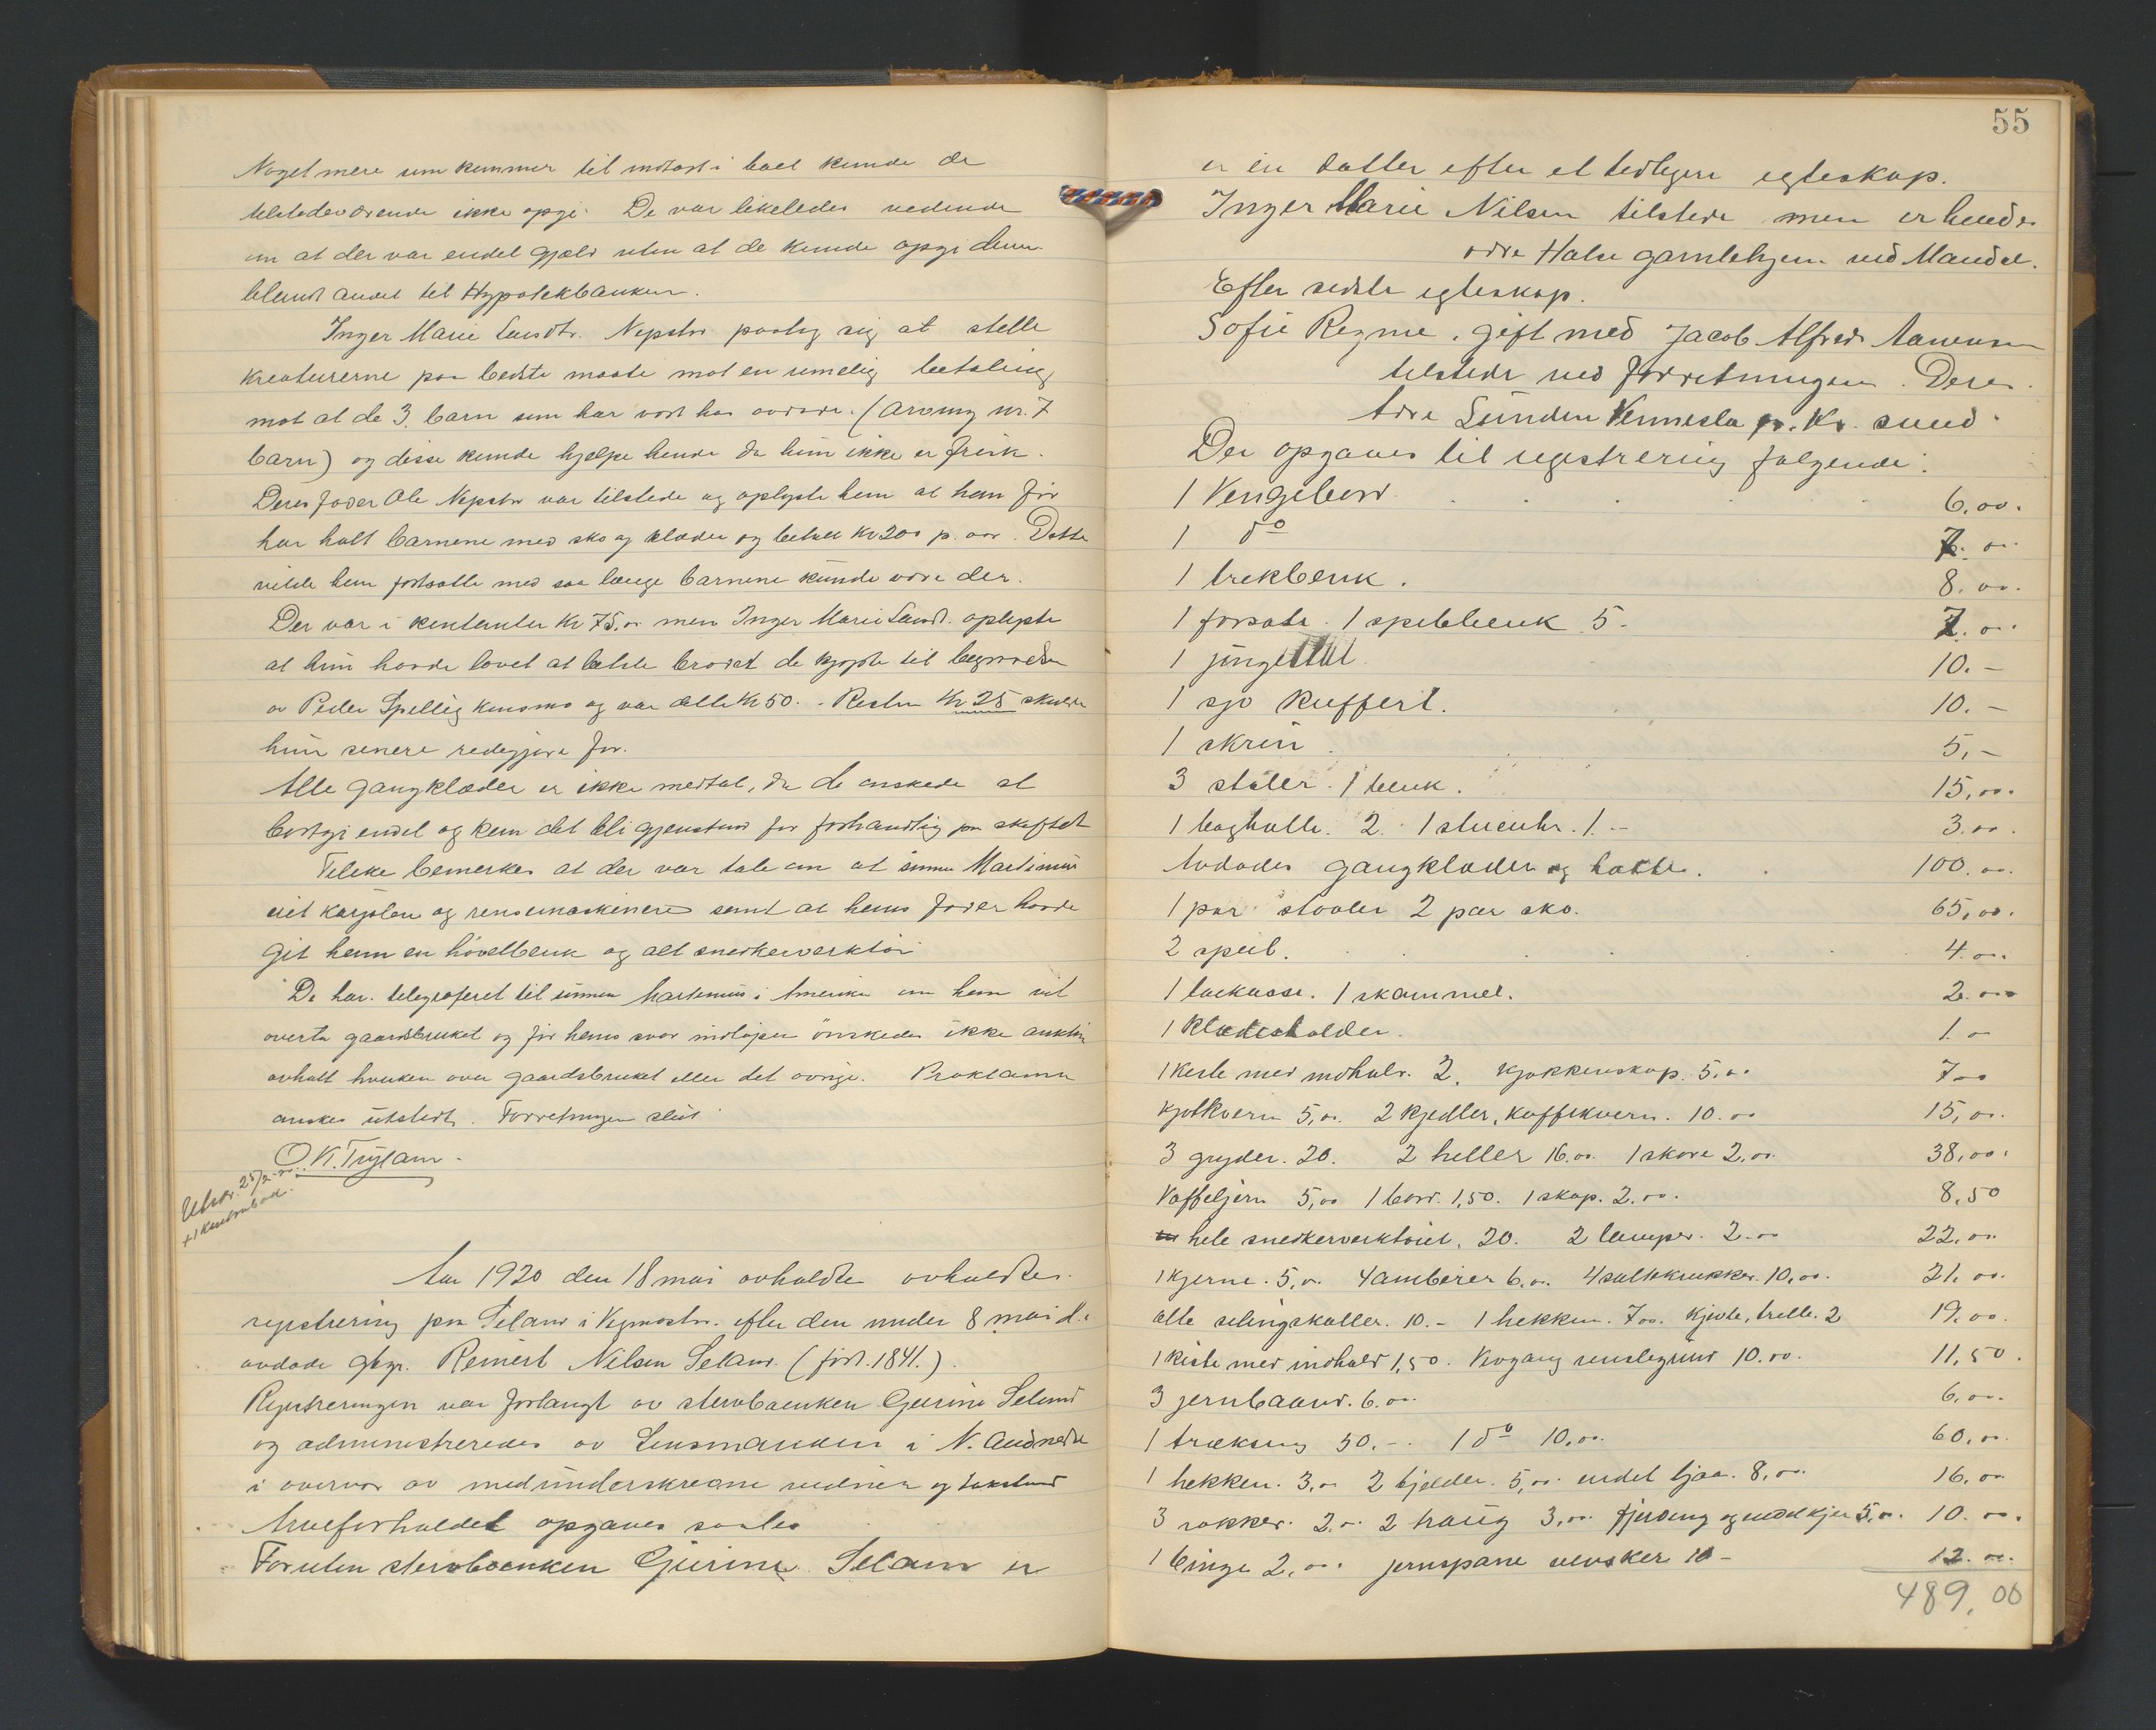 Noget mere som kommer til indtægt i boet kunde de
tilstedeværende ikke opgi. De var likeledes vidende
om at der var endel gjæld uten at de kunde opgi denne
blandt andet til Hypotekbanken.
Inger Marie Landtv. Nepstø paatog sig at stelle
kreaturerne paa bedste maate mot en rimelig betaling
mot at de 3 barn som har vært hos avdøde. (Arving nr. 7
barn) og disse kunde hjelpe hende da hun ikke er frisk.
Deres fader Ole Nepstø var tilstede og oplyste hun at han før
har holt barnene med sko og klæder og betalt Kr 200 p. aar. Dette
vilde han fortsætte med saa længe barnene kunde være der.
Der var i kontanter Kr 75,00 men Inger Marie Landt. oplyste
at hun havde lovet at betale brødet de kjøpte til begravelsen
av Peder Spelling og var dette Kr 50. - Resten Kr 25 skulde
hun senere redegjøre for.
Alle gangklæder er ikke medtat, da de ønskede at
bortgi endel og kan det bli gjenstand for forhandling paa skiftet
Tilike bemerkes at der var tale om at sønnen Martinius
eiet karjolen og rensemaskinen samt at hans fader havde
git ham en hövelbenk og alt snedkerverktöi
De har telegraferet til sönnen Martinius i Amerika om han vil
overta gaardsbruket og før hans svar indløper önskedes ikke auktion
avholt hverken over gaardsbruket eller det øvrige. Proklama
ønskes utstedt. Forretningen slut
O. K. Trygland
Utskr. 25/2-20
+ 1
Aar 1920 den 18 mai avholdte avholdtes
registrering paa Seland i Vegmostø. efter den under 8 mai d.a
avdøde gbgr. Reinert Nilsen Seland. (født. 1841.)
Registreringen var forlangt av stervboenken Gurine Seland
og administreredes av Lensmanden i N. Audnedal
i overvær av medünderskrevne vidner og takstmænd
Arveforholdet opgaves saales
Foruten stervboenken Gurine Seland er
55
er en datter efter et tidligere egteskap.
Inger Marie Nilsen tilstede men er hendes
adre Halse gamlehjem ved Mandal.
Efter sidste egteskap.
Sofie Regine, gift med Jacob Alfred Aanensen
tilstede ved forretningen. Deres
adre Sünden Vennesla pr. Kr. sand
Der opgaves til registrering følgende:
1 Vengebord 6,00.
1 do 7.00
1 trekbenk. 8,00.
1 forsats. 1 spilebenk 5.- 7.00
1 jüngetstol 10.-
1 sjø kuffert. 10.-
1 skrin 5,-
3 stoler. 1 benk. 15,00.
1 boghylle. 2. 1 stueuhr. 1.- 3.00.
Avdødes gangklæder og hatte. 100.00.
1 par støvler 2 par sko. 65,00.
2 speil. 4.00.
1 1 skammel. 2.00
1 klædesholder. 1.0
1 Kiste med indhold. 2. Kjøkkenskap. 5,00 7.00
Kjøtkvern 5,00. 2 kjedler, kaffekvern. 10.00 15,00.
3 gryder. 20. 2 heller 16.00. 1 skore 2,00. 38,00.
Vaffeljern 5,00 1 bord. 1,50. 1 skap. 2.00. 8,50
hele snedkerverktöiet. 20. 2 lamper. 2.00 22,00.
1 kjerne. 5,00. 4 ambærer 6.00. 4 saltekrukker. 10,00. 21.00.
alle selingskaller. 10.- 1 hekken. 7.00. Kjevle, trelle. 2 19.00.
1 kiste med indhold 1,50. Vevgang renslegrind 10.00. 11,50.
3 jernbaand. 6.00. 6,00.
1 trækseng 50.-. 1 do 10,00. 60.00.
1 hekken. 3,00 2 bjelder. 5,00 endel ljaa. 8,00. 16,00
3 rokker. 2.00 2 traug 3,00. fjerding og endel kjer 5,00. 10.00.
1 binge 2,00. jernspane 10- 12.00.
489,00